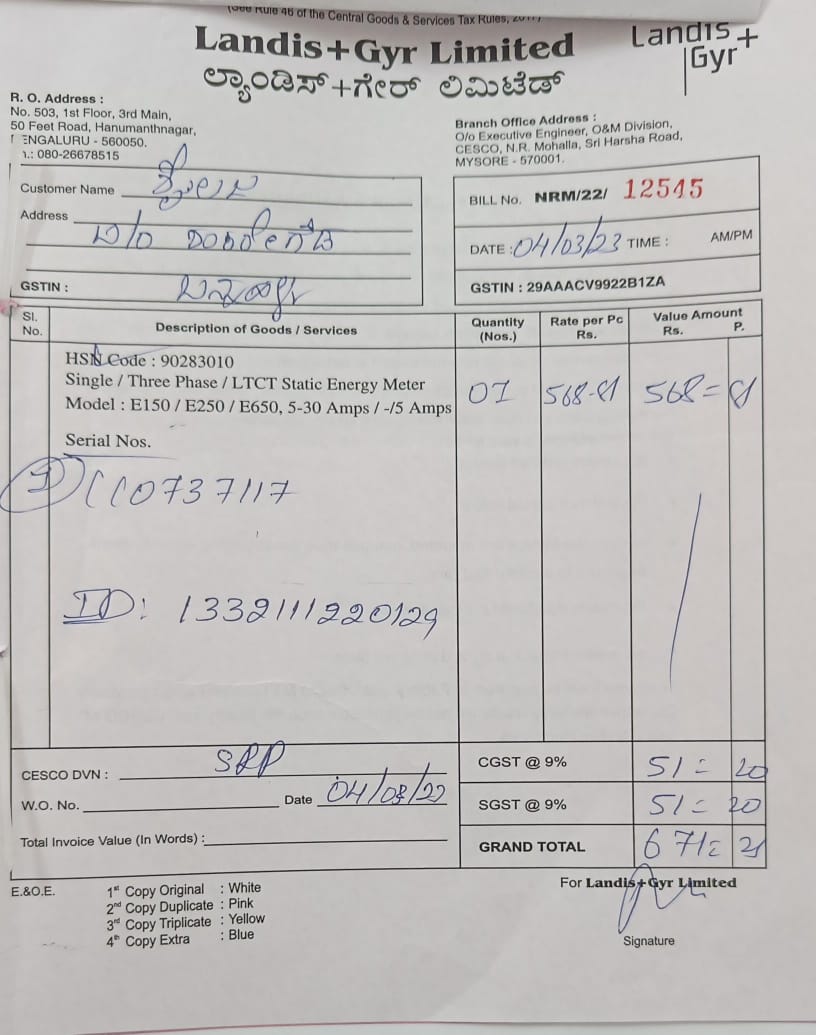 (See Rule 46 of the Central Goods & Services Tax Rules, 2017)
Landis+Gyr Limited
Landis+
Gyr
ಲ್ಯಾಂಡಿಸ್+ಗೇರ್ ಲಿಮಿಟೆಡ್
R. O. Address :
No. 503, 1st Floor, 3rd Main,
50 Feet Road, Hanumanthnagar,
ENGALURU - 560050.
.: 080-26678515
Branch Office Address :
O/o Executive Engineer, O&M Division,
CESCO, N.R. Mohalla, Sri Harsha Road,
MYSORE - 570001.
Customer Name
Address
GSTIN :
BILL No. NRM/22/ 12545
DATE : 04/03/23 TIME : AM/PM
GSTIN : 29AAACV9922B1ZA
Sl. No. Description of Goods / Services Quantity (Nos.) Rate per Pc Rs. Value Amount Rs. P.
HSN Code : 90283010
Single / Three Phase / LTCT Static Energy Meter
Model : E150 / E250 / E650, 5-30 Amps / -/5 Amps 01 568-81 568=81
Serial Nos.
1) CC0737117
ID: 1332111220129
CESCO DVN : SRP
CGST @ 9% 51= 20
W.O. No. Date
SGST @ 9% 51= 20
Total Invoice Value (In Words) :
GRAND TOTAL 671= 21
E.&O.E.
1st Copy Original : White
2nd Copy Duplicate : Pink
3rd Copy Triplicate : Yellow
4th Copy Extra : Blue
For Landis+Gyr Limited
Signature